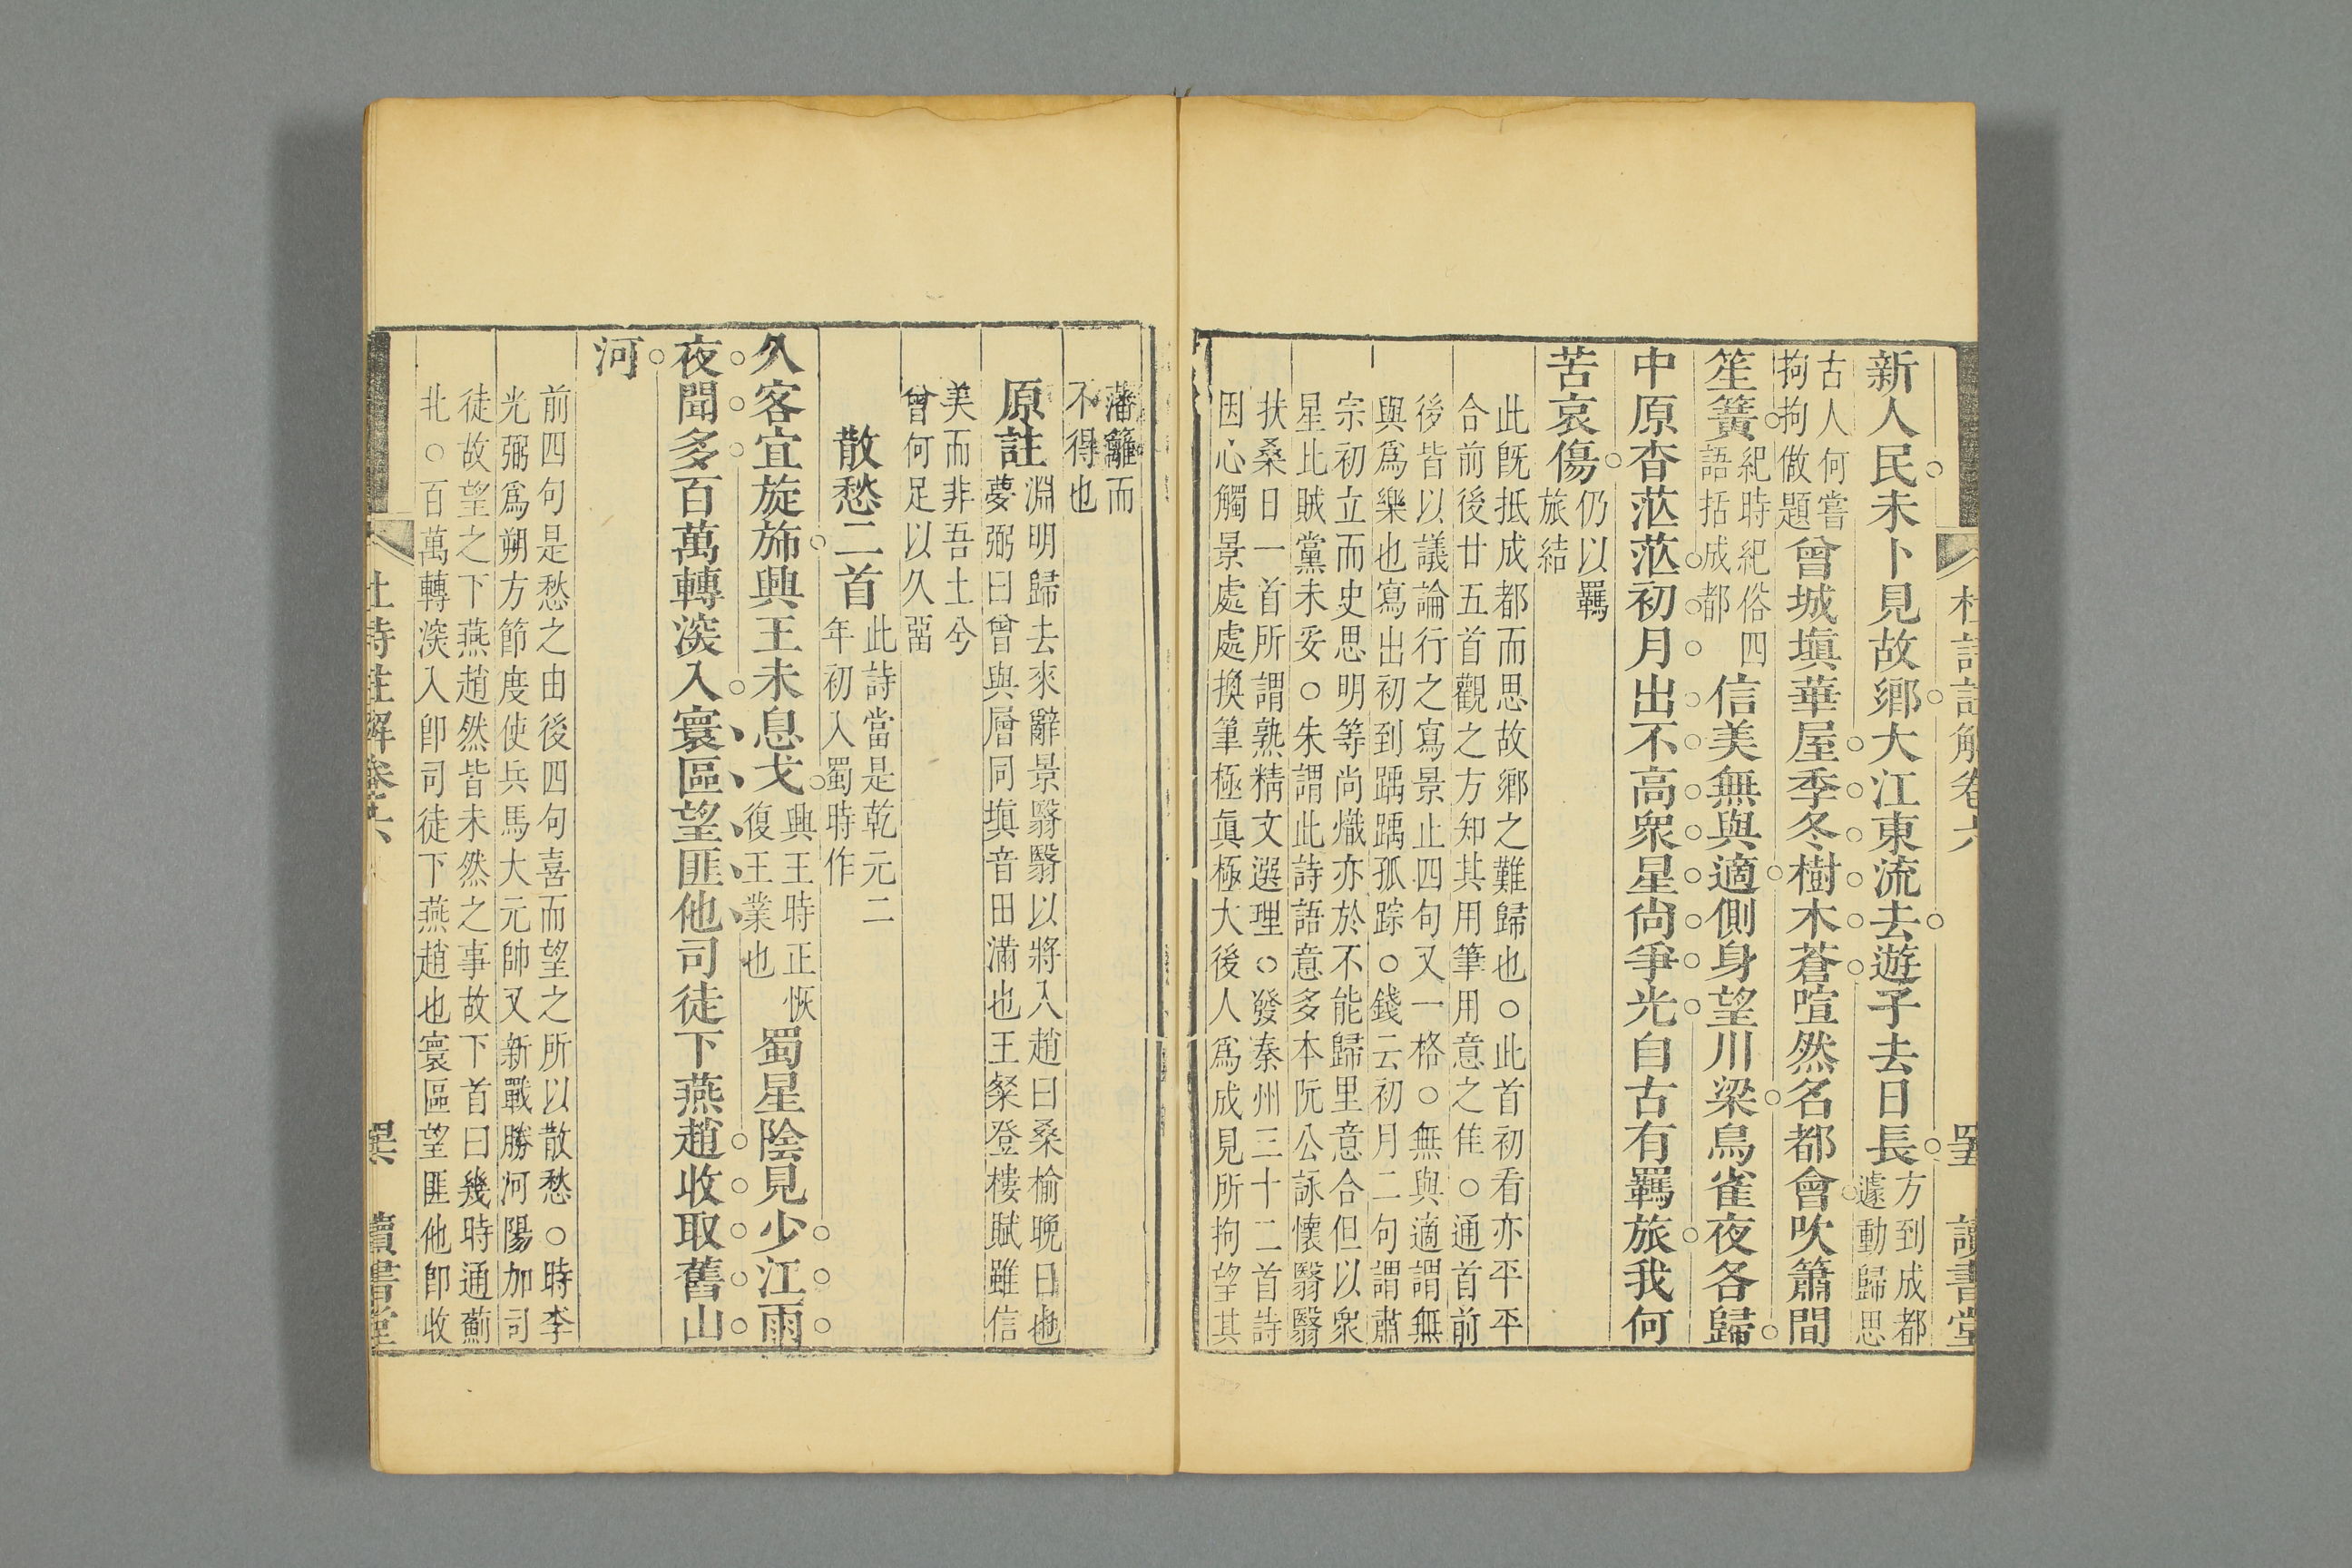 杜詩註解卷六 讀書堂
新人民未卜見故鄉大江東流去遊子去日長方到成都遽動歸思
古人何嘗拘拘倣題曾城塡華屋季冬樹木蒼喧然名都會吹簫間
笙簧紀時紀俗四語括成都信美無與適側身望川梁鳥雀夜各歸
中原杳茫茫初月出不高衆星尙爭光自古有羈旅我何
苦哀傷仍以羈旅結
此旣抵成都而思故鄉之難歸也○此首初看亦平平
合前後廿五首觀之方知其用筆用意之佳○通首前
後皆以議論行之寫景止四句又一格○無與適謂無
與爲樂也寫出初到踽踽孤踪○錢云初月二句謂肅
宗初立而史思明等尚熾亦於不能歸里意合但以衆
星比賊黨未妥○朱謂此詩語意多本阮公詠懷翳翳
扶桑日一首所謂熟精文選理○發秦州三十二首詩
因心觸景處處換筆極眞極大後人爲成見所拘望其
藩籬而
不得也
原註淵明歸去來辭景翳翳以將入趙曰桑榆晚日也
夢弼曰曾與層同塡音田滿也王粲登樓賦雖信
美而非吾土兮
曾何足以久畱
散愁二首此詩當是乾元二年初入蜀時作
久客宜旋斾興王未息戈興王時正恢復王業也蜀星陰見少江雨
夜聞多百萬轉深入寰區望匪他司徒下燕趙收取舊山
河
前四句是愁之由後四句喜而望之所以散愁○時李
光弼爲朔方節度使兵馬大元帥又新戰勝河陽加司
徒故望之下燕趙然皆未然之事故下首曰幾時通薊
北○百萬轉深入卽司徒下燕趙也寰區望匪他卽收
杜詩註解卷六 讀書堂